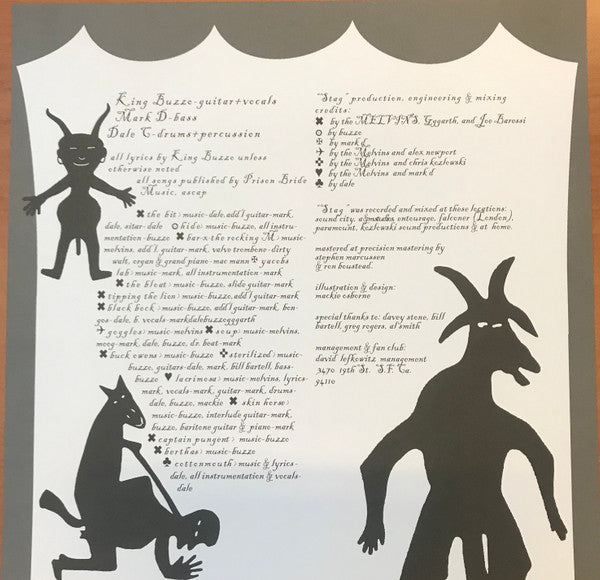 King Buzzo-guitar+vocals
Mark D-bass
Dale C-drums+percussion
all lyrics by King Buzzo unless
otherwise noted
all songs published by Prison Bride
Music, ascap
✖ the bit> music-dale, add'l guitar-mark,
dale, sitar-dale ⊙ hide> music-buzzo, all instru-
mentation-buzzo ✖ bar-x-the rocking M> music-
melvins, add'l. guitar-mark, valve trombone-dirty
walt, organ & grand piano-mac mann ✠ yacobs
lab> music-mark, all instrumentation-mark
✖ the bloat> music-buzzo, slide guitar-mark
✖ tipping the lion> music-buzzo, add'l guitar-mark
✖ black bock> music-buzzo, add'l guitar-mark, bon-
gos-dale, b. vocals-markdalebuzzogggarth
✈ goggles> music-melvins ✖ soup> music-melvins,
moog-mark, dale, buzzo, dr. beat-mark
✖ buck owens> music-buzzo ✤ sterilized> music-
buzzo, guitars-dale, mark, bill bartell, bass-
buzzo ♥ lacrimosa> music-melvins, lyrics-
mark, vocals-mark, guitar-mark, drums-
dale, buzzo, mackie ✖ skin horse>
music-buzzo, interlude guitar-mark,
buzzo, baritone guitar & piano-mark
✖ captain pungent> music-buzzo
✖ berthas> music-buzzo
♣ cottonmouth> music & lyrics-
dale, all instrumentation & vocals-
dale
"Stag" production, engineering & mixing
credits:
✖ by the MELVINS, Gggarth, and Joe Barossi
⊙ by buzzo
✠ by mark d
✈ by the Melvins and alex newport
✤ by the Melvins and chris kozlowski
♥ by the Melvins and mark d
♣ by dale
"Stag" was recorded and mixed at these locations:
sound city, a&mstudios, entourage, falconer (London),
paramount, kozlowski sound productions & at home.
mastered at precision mastering by
stephen marcussen
& ron boustead.
illustration & design:
mackie osborne
special thanks to: davey stone, bill
bartell, greg rogers, al smith
management & fan club:
david lefkowitz management
3470 19th St. S.F. Ca.
94110